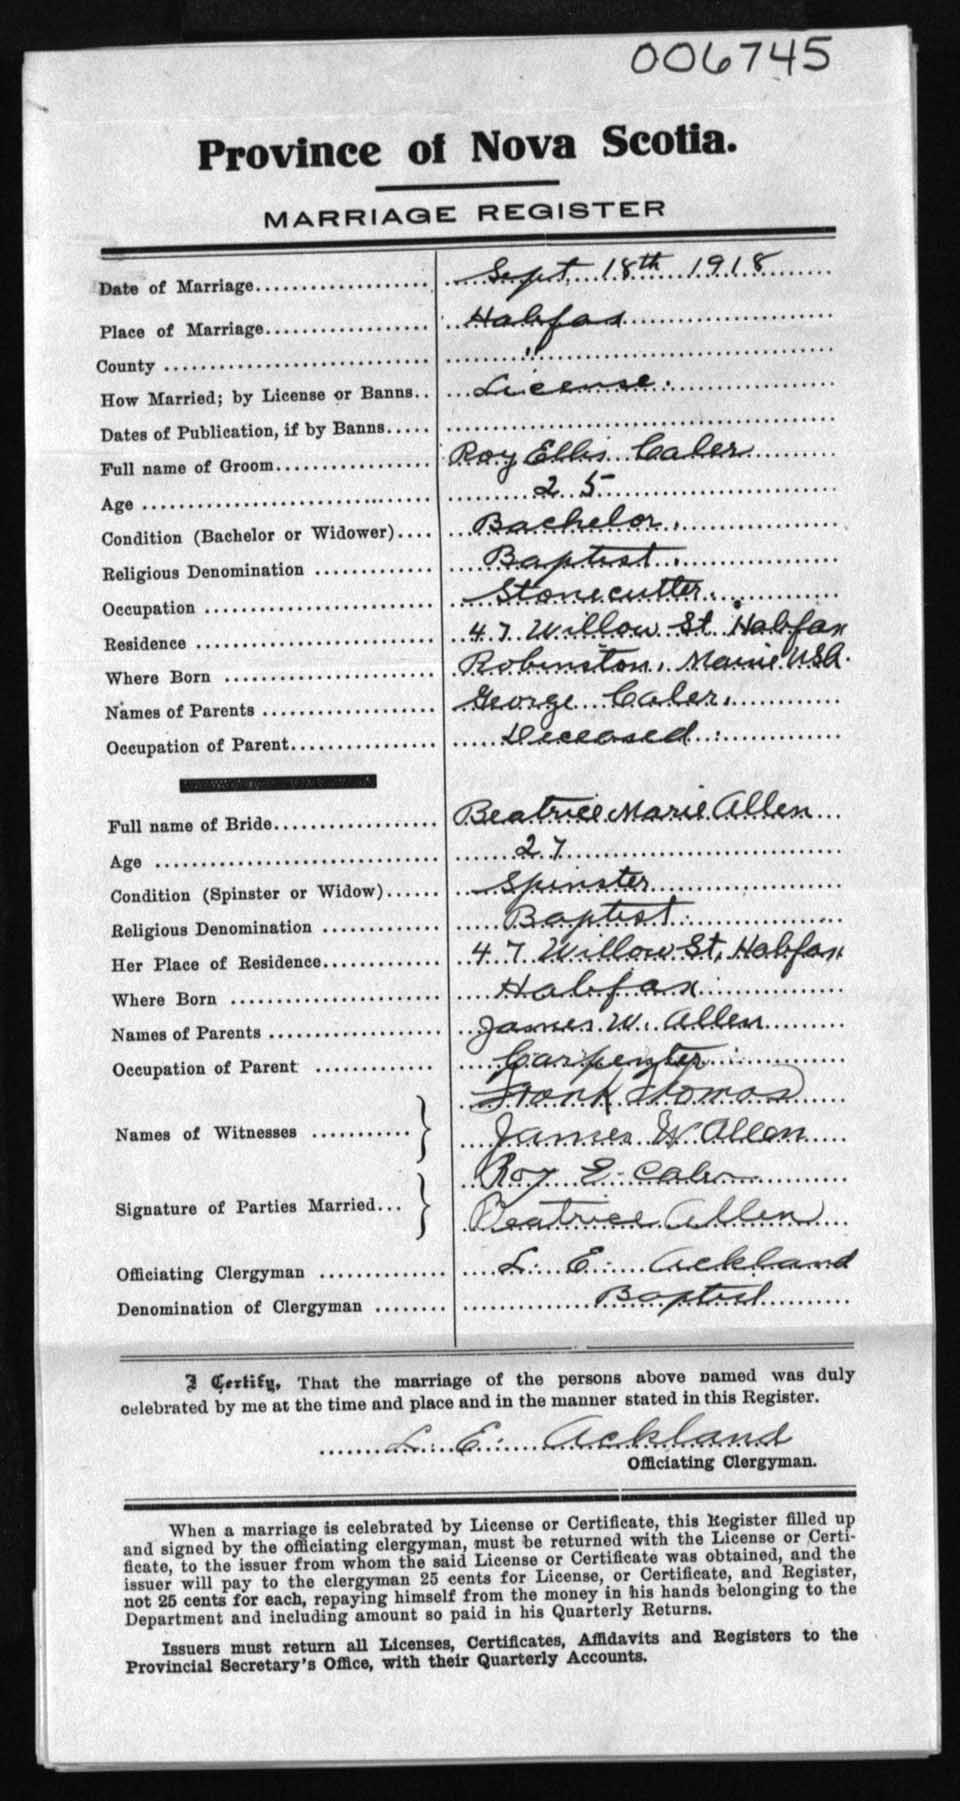 006745
Province of Nova Scotia.
MARRIAGE REGISTER
Date of Marriage.................. Sept. 18th 1918
Place of Marriage................. Halifax
County ............................ "
How Married; by License or Banns.. License.
Dates of Publication, if by Banns.....
Full name of Groom................ Roy Ellis Caler
Age .............................. 25
Condition (Bachelor or Widower).... Bachelor.
Religious Denomination ............ Baptist.
Occupation ........................ Stonecutter.
Residence ......................... 47 Willow St. Halifax
Where Born ........................ Robinston, Maine USA.
Names of Parents .................. George Caler.
Occupation of Parent................ Deceased.
Full name of Bride.................. Beatrice Marie Allen
Age .............................. 27
Condition (Spinster or Widow)...... Spinster
Religious Denomination ............ Baptist.
Her Place of Residence............. 47 Willow St, Halifax
Where Born ........................ Halifax
Names of Parents .................. James W. Allen
Occupation of Parent ............. Carpenter
Names of Witnesses ........... } Frank Thomas
James W Allen
Signature of Parties Married... } Roy E. Caler
Beatrice Allen
Officiating Clergyman .............. L. E. Ackland
Denomination of Clergyman ........ Baptist
I Certify, That the marriage of the persons above named was duly
celebrated by me at the time and place and in the manner stated in this Register.
L. E. Ackland
Officiating Clergyman.
When a marriage is celebrated by License or Certificate, this Register filled up
and signed by the officiating clergyman, must be returned with the License or Certi-
ficate, to the issuer from whom the said License or Certificate was obtained, and the
issuer will pay to the clergyman 25 cents for License, or Certificate, and Register,
not 25 cents for each, repaying himself from the money in his hands belonging to the
Department and including amount so paid in his Quarterly Returns.
Issuers must return all Licenses, Certificates, Affidavits and Registers to the
Provincial Secretary's Office, with their Quarterly Accounts.